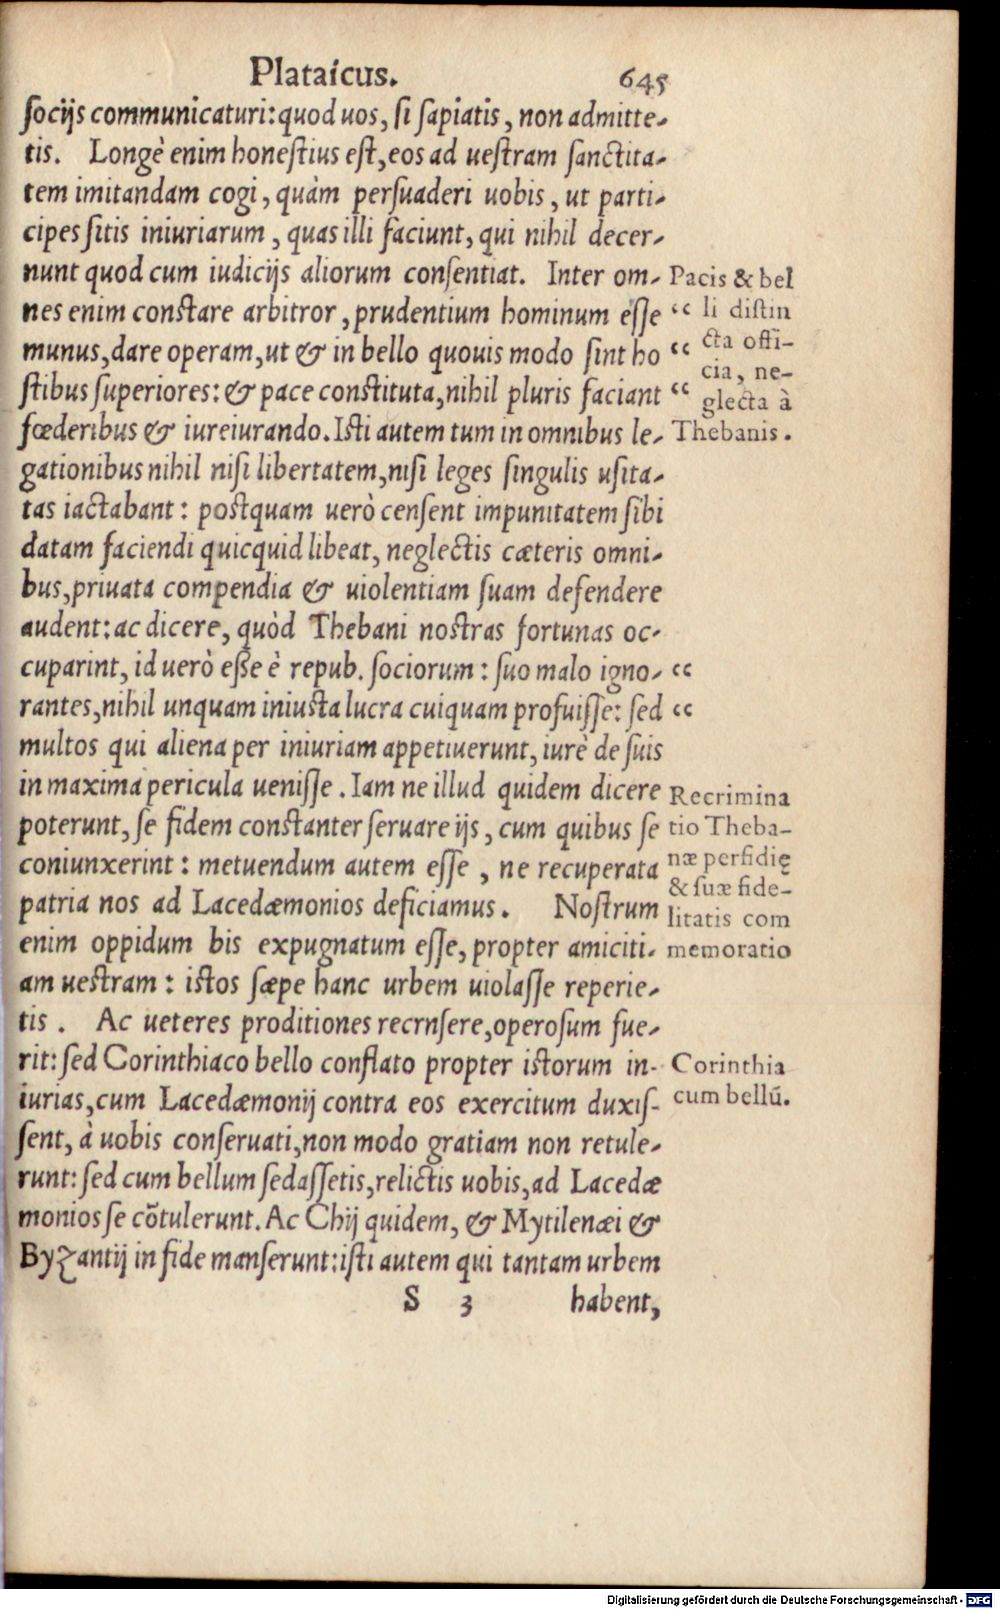 Plataicus. 645
socijs communicaturi: quod uos, si sapiatis, non admitte-
tis. Longè enim honestius est, eos ad uestram sanctita-
tem imitandam cogi, quàm persuaderi uobis, ut parti-
cipes sitis iniuriarum, quas illi faciunt, qui nihil decer-
nunt quod cum iudicijs aliorum consentiat. Inter om-
nes enim constare arbitror, prudentium hominum esse
munus, dare operam, ut & in bello quouis modo sint ho
stibus superiores: & pace constituta, nihil pluris faciant
fœderibus & iureiurando. Isti autem tum in omnibus le-
gationibus nihil nisi libertatem, nisi leges singulis usita-
tas iactabant: postquam uerò censent impunitatem sibi
datam faciendi quicquid libeat, neglectis cæteris omni-
bus, priuata compendia & uiolentiam suam defendere
audent: ac dicere, quòd Thebani nostras fortunas oc-
cuparint, id uerò eße è repub. sociorum: suo malo igno-
rantes, nihil unquam iniusta lucra cuiquam profuisse: sed
multos qui aliena per iniuriam appetiuerunt, iurè de suis
in maxima pericula uenisse. Iam ne illud quidem dicere
poterunt, se fidem constanter seruare ijs, cum quibus se
coniunxerint: metuendum autem esse, ne recuperata
patria nos ad Lacedæmonios deficiamus. Nostrum
enim oppidum bis expugnatum esse, propter amiciti-
am uestram: istos sæpe hanc urbem uiolasse reperie-
tis. Ac ueteres proditiones recrnsere, operosum fue-
rit: sed Corinthiaco bello conflato propter istorum in-
iurias, cum Lacedæmonij contra eos exercitum duxis-
sent, à uobis conseruati, non modo gratiam non retule-
runt: sed cum bellum sedassetis, relictis uobis, ad Lacedæ
monios se cõtulerunt. Ac Chij quidem, & Mytilenæi &
Byzantij in fide manserunt: isti autem qui tantam urbem
S 3 habent,
Pacis & bel
“ li distin
“ cta offi-
cia, ne-
“ glecta à
Thebanis.
“
“
Recrimina
tio Theba-
næ perfidię
& suæ fide-
litatis com
memoratio
Corinthia
cum bellũ.
Digitalisierung gefördert durch die Deutsche Forschungsgemeinschaft - DFG